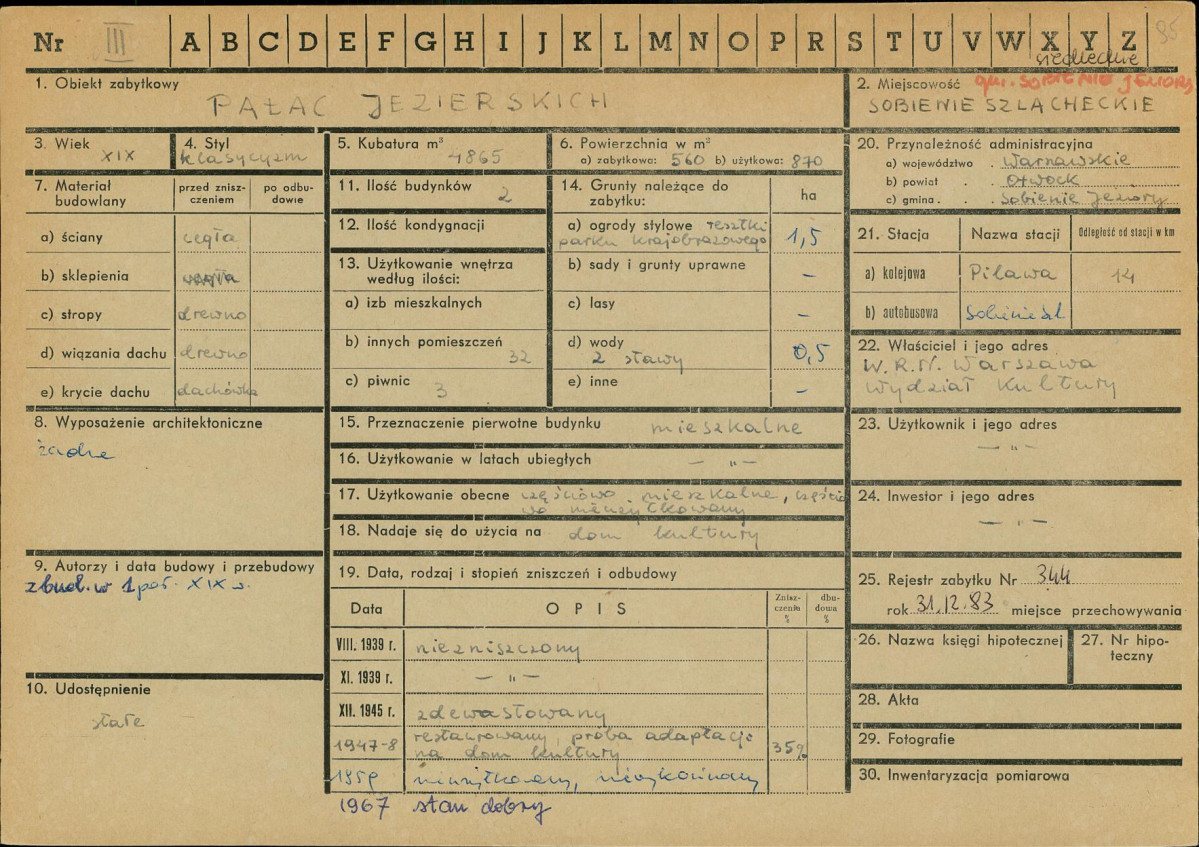 Nr III A B C D E F G H I J K L M N O P R S T U V W X Y Z 85
siedleckie
1. Obiekt zabytkowy
PAŁAC JEZIERSKICH
2. Miejscowość gm. SOBIENIE JEZIORY
SOBIENIE SZLACHECKIE
3. Wiek
XIX
4. Styl
klasycyzm
5. Kubatura m³
4865
6. Powierzchnia w m²
a) zabytkowa: 560 b) użytkowa: 870
7. Materiał budowlany
przed zniszczeniem
po odbudowie
a) ściany cegła
b) sklepienia
c) stropy drewno
d) wiązania dachu drewno
e) krycie dachu dachówka
8. Wyposażenie architektoniczne
żadne
9. Autorzy i data budowy i przebudowy
zbud. w 1 poł. XIX w.
10. Udostępnienie
stałe
11. Ilość budynków 2
12. Ilość kondygnacji
13. Użytkowanie wnętrza
według ilości:
a) izb mieszkalnych
b) innych pomieszczeń
32
c) piwnic 3
14. Grunty należące do
zabytku:
ha
a) ogrody stylowe resztki
parku krajobrazowego 1,5
b) sady i grunty uprawne –
c) lasy –
d) wody
2 stawy 0,5
e) inne –
15. Przeznaczenie pierwotne budynku mieszkalne
16. Użytkowanie w latach ubiegłych – „ –
17. Użytkowanie obecne częściowo mieszkalne, częścio
wo nieużytkowany
18. Nadaje się do użycia na dom kultury
19. Data, rodzaj i stopień zniszczeń i odbudowy
Data OPIS Zniszczenia % dbudowa %
VIII. 1939 r. niezniszczony
XI. 1939 r. – „ –
XII. 1945 r. zdewastowany
1947-8 restaurowany, próba adaptacji
na dom kultury 35%
1959 nieużytkowany, niewykończony
1967 stan dobry
20. Przynależność administracyjna
a) województwo . Warszawskie
b) powiat . . Otwock
c) gmina . . Sobienie Jeziory
21. Stacja Nazwa stacji Odległość od stacji w km
a) kolejowa Pilawa 14
b) autobusowa Sobienie Szl.
22. Właściciel i jego adres
W.R.N. Warszawa
Wydział Kultury
23. Użytkownik i jego adres
– „ –
24. Inwestor i jego adres
– „ –
25. Rejestr zabytku Nr 344
rok 31.12.83 miejsce przechowywania
26. Nazwa księgi hipotecznej
27. Nr hipoteczny
28. Akta
29. Fotografie
30. Inwentaryzacja pomiarowa